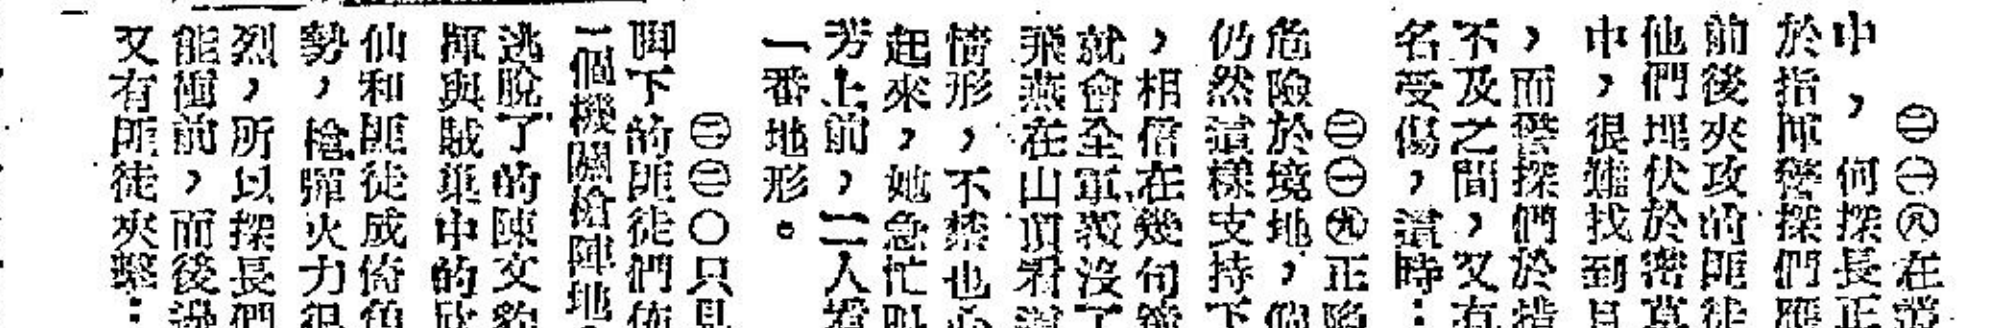 ㊁㊀㊇在這
中，何探長正
於指揮警探們應
前後夾攻的匪徒
他們埋伏於密草
中，很難找到目
，而警探們於措
不及之間，又有
名受傷，這時…
㊁㊀㊈正陷
危險於境地，倘
仍然這樣支持下
，相信在幾句鐘
就會全軍覆沒了
飛燕在山頂看這
情形，不禁也心
起來，她急忙叫
芳上前，二人看
一番地形。
㊁㊁〇只見
脚下的匪徒們佈
一個機關槍陣地
逃脫了的陳文豹
揮與賊巢中的
仙和匪徒成倚角
勢，槍彈火力很
烈，所以探長們
能衝前，而後邊
又有匪徒夾擊…